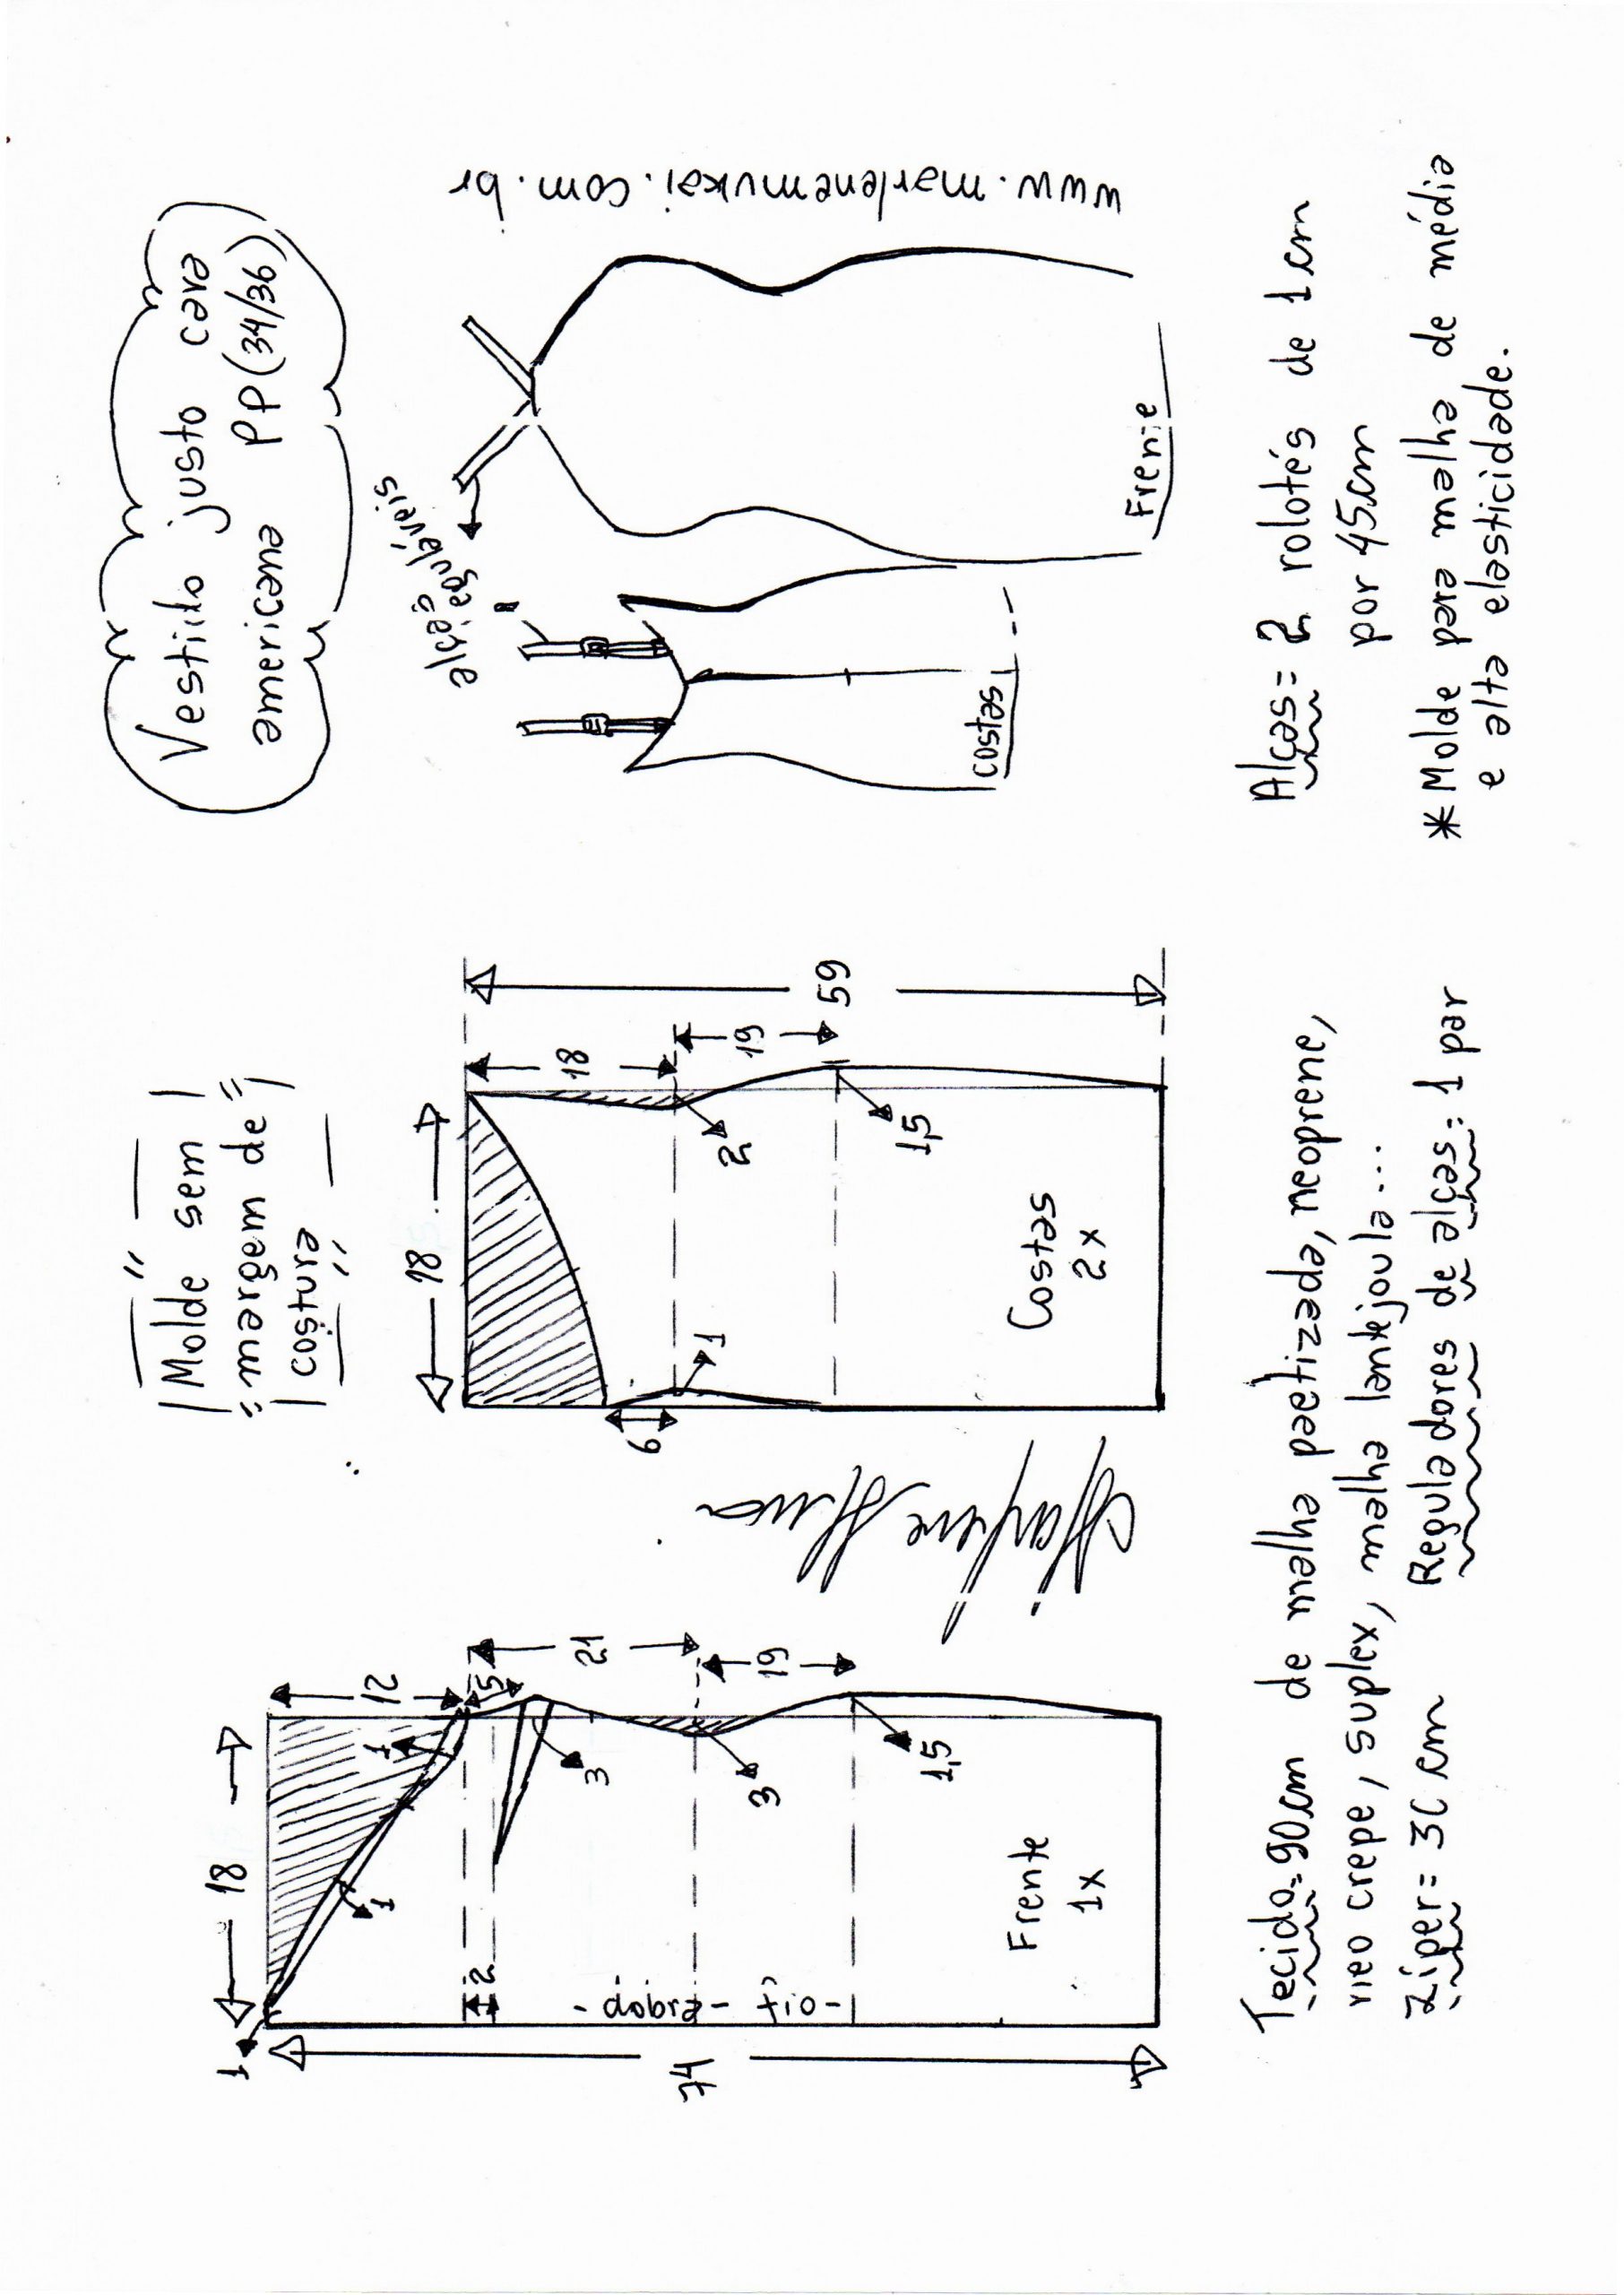 Vestido justo cava
americana PP (34/36)
alças
reguláveis
Costas
Frente
www.marlenemukai.com.br
Molde sem
margem de
costura
18
12
1
1
1
5
2
21
19
3
3
1,5
74
-dobra- fio-
Frente
1x
18
18
19
59
6
1
2
1,5
Costas
2x
Tecido=90cm de malha paetizada, neoprene,
neo crepe, suplex, malha lankjoula...
Zíper= 30 cm Reguladores de alças: 1 par
Alças= 2 rolotés de 1cm
por 45cm
*Molde para malha de média
e alta elasticidade.